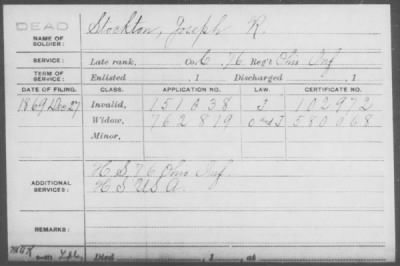 DEAD
NAME OF SOLDIER: Stockton, Joseph R.
SERVICE: Late rank, Co. C, 76 Reg't Ohio Inf
TERM OF SERVICE: Enlisted , 1 Discharged , 1
DATE OF FILING. CLASS. APPLICATION NO. LAW. CERTIFICATE NO.
1869 Dec 27 Invalid, 151838 102972
Widow, 762819 580068
Minor,
ADDITIONAL SERVICES: H S, 76 Ohio Inf.
H S U S A.
REMARKS:
Died , 1 , at